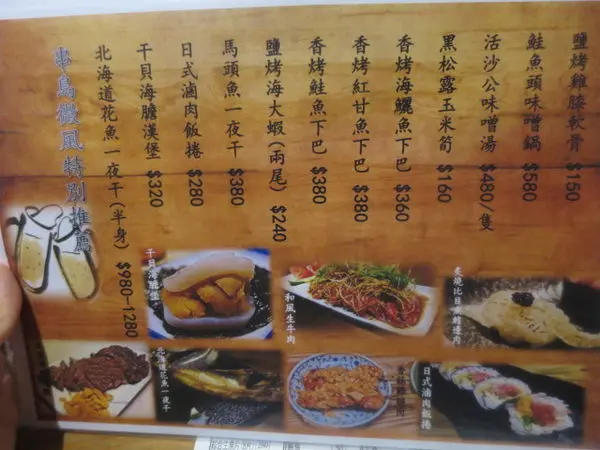 鹽烤雞膝軟骨 $150
鮭魚頭味噌鍋 $580
活沙公味噌湯 $480/隻
黑松露玉米筍 $160
香烤海鱺魚下巴 $360
香烤紅甘魚下巴 $380
香烤鮭魚下巴 $380
鹽烤海大蝦(兩尾) $240
馬頭魚一夜干 $380
日式滷肉飯捲 $280
干貝海膽漢堡 $320
北海道花魚一夜干(半身) $980-1280
串鳥微風特別推薦
干貝海膽堡
和風生牛肉
炙燒比目魚鰭邊肉
北海道花魚一夜干
日式滷肉飯捲